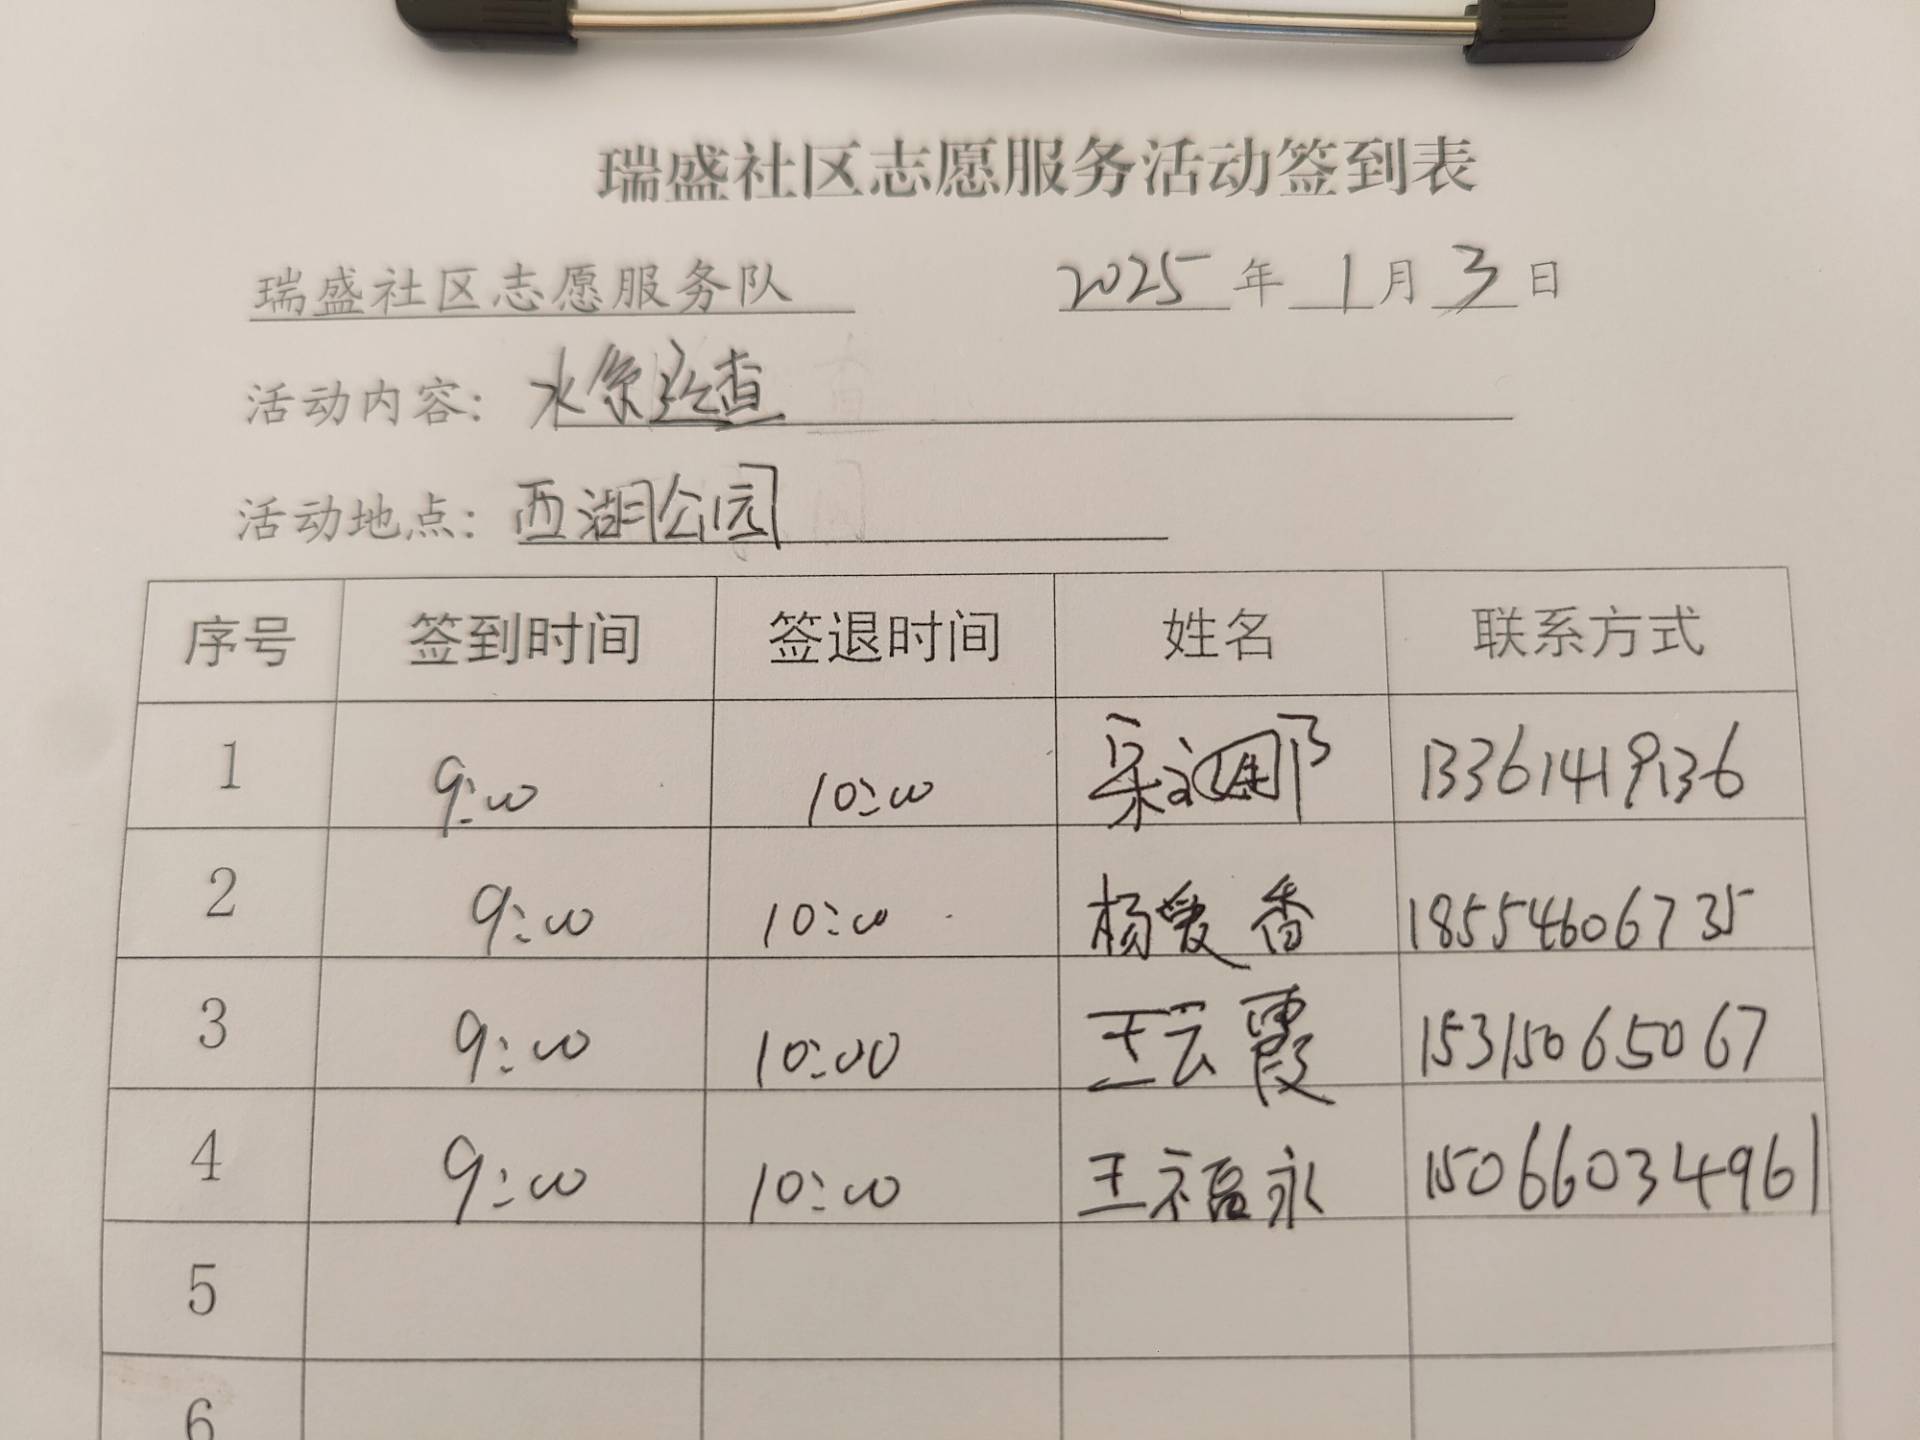 瑞盛社区志愿服务活动签到表
瑞盛社区志愿服务队 2025年1月3日
活动内容：水系巡查
活动地点：西湖公园
序号 签到时间 签退时间 姓名 联系方式
1 9:00 10:00 13361419136
2 9:00 10:00 杨爱香 18554606735
3 9:00 10:00 王云霞 15315065067
4 9:00 10:00 王福永 15066034961
5
6